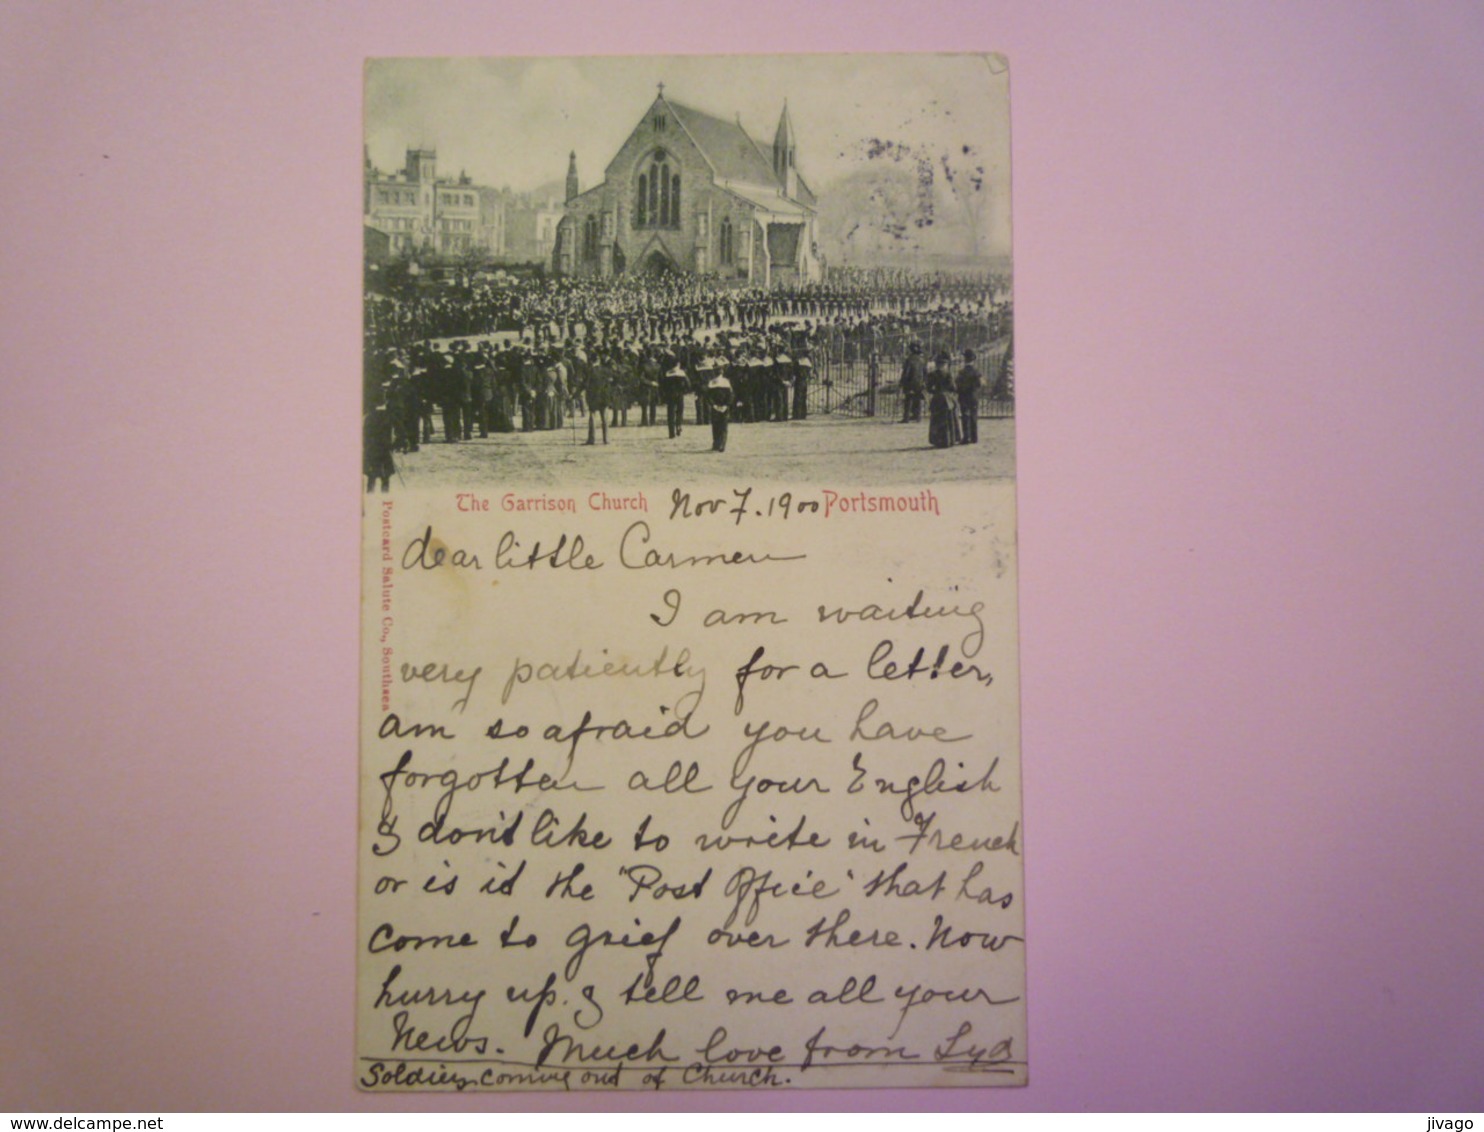 The Garrison Church Nov 7. 1900 Portsmouth
Postcard Salute Co., Southsea
dear little Carmen
I am waiting
very patiently for a letter,
am so afraid you have
forgotten all your English
& don't like to write in French
or is it the "Post Office" that has
come to grief over there. Now
hurry up. & tell me all your
News. Much love from Lyd
Soldiers coming out of Church.
delcampe.net
jivago